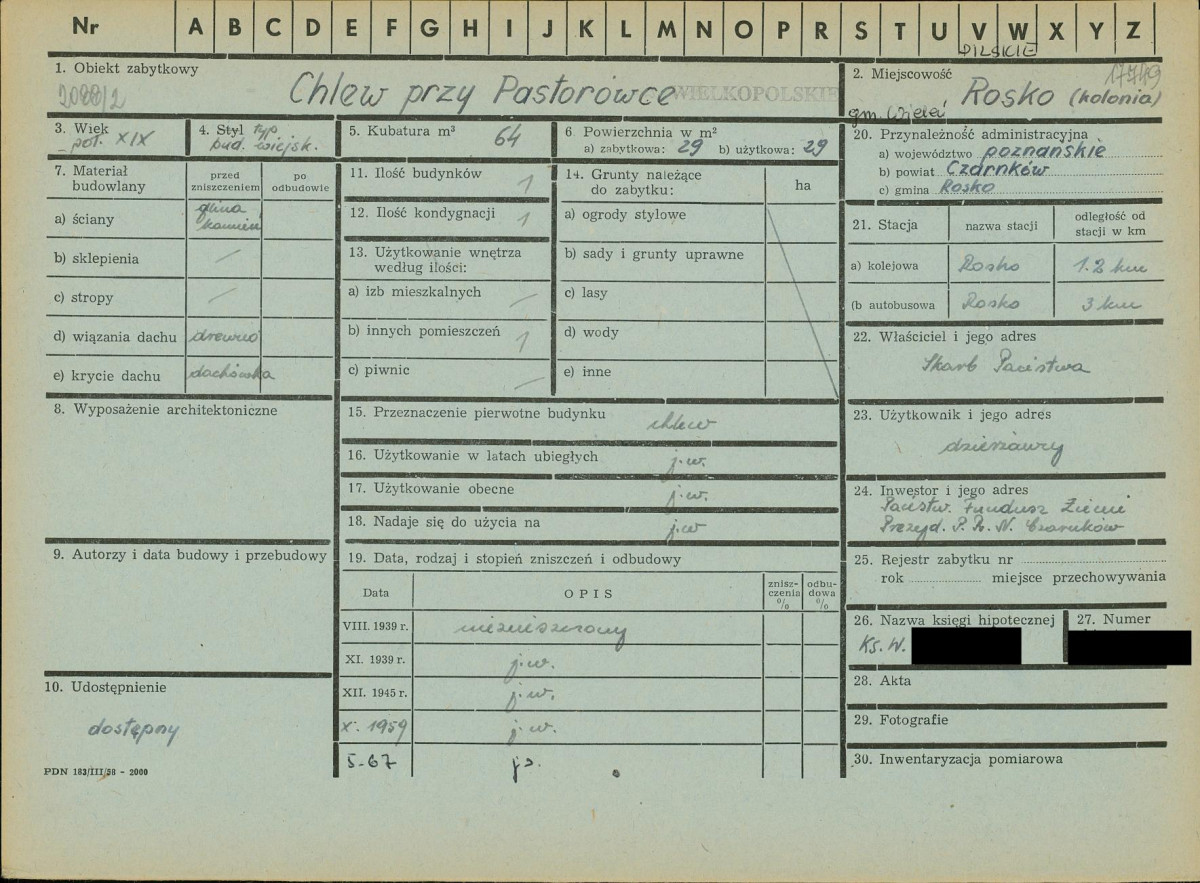 Nr A B C D E F G H I J K L M N O P R S T U V W X Y Z
PILSKIE
1. Obiekt zabytkowy
2088/2
Chlew przy Pastorówce
WIELKOPOLSKIE
2. Miejscowość
17749
gm. Wieleń
Rosko (kolonia)
3. Wiek
poł. XIX
4. Styl typ.
bud. wiejsk.
5. Kubatura m³
64
6. Powierzchnia w m²
a) zabytkowa: 29 b) użytkowa: 29
20. Przynależność administracyjna
a) województwo poznańskie
b) powiat Czarnków
c) gmina Rosko
7. Materiał
budowlany
przed
zniszczeniem
po
odbudowie
a) ściany
glina
kamień
b) sklepienia —
c) stropy —
d) wiązania dachu drewno
e) krycie dachu dachówka
8. Wyposażenie architektoniczne
9. Autorzy i data budowy i przebudowy
10. Udostępnienie
dostępny
PDN 183/III/58 - 2000
11. Ilość budynków 1
12. Ilość kondygnacji 1
13. Użytkowanie wnętrza
według ilości:
a) izb mieszkalnych —
b) innych pomieszczeń 1
c) piwnic —
14. Grunty należące
do zabytku:
ha
a) ogrody stylowe
b) sady i grunty uprawne
c) lasy
d) wody
e) inne
15. Przeznaczenie pierwotne budynku chlew
16. Użytkowanie w latach ubiegłych j.w.
17. Użytkowanie obecne j.w.
18. Nadaje się do użycia na j.w
19. Data, rodzaj i stopień zniszczeń i odbudowy
Data
OPIS
znisz-
czenia
%
odbu-
dowa
%
VIII. 1939 r. niezniszczony
XI. 1939 r. j.w.
XII. 1945 r. j.w.
X. 1959 j.w.
5-67 j.w.
21. Stacja
nazwa stacji
odległość od
stacji w km
a) kolejowa Rosko 1.2 km
(b autobusowa Rosko 3 km
22. Właściciel i jego adres
Skarb Państwa
23. Użytkownik i jego adres
dzierżawcy
24. Inwestor i jego adres
Państw. Fundusz Ziemi
Prezyd. P.R.N. Czarnków
25. Rejestr zabytku nr
rok miejsce przechowywania
26. Nazwa księgi hipotecznej
Ks. W.
27. Numer
28. Akta
29. Fotografie
30. Inwentaryzacja pomiarowa